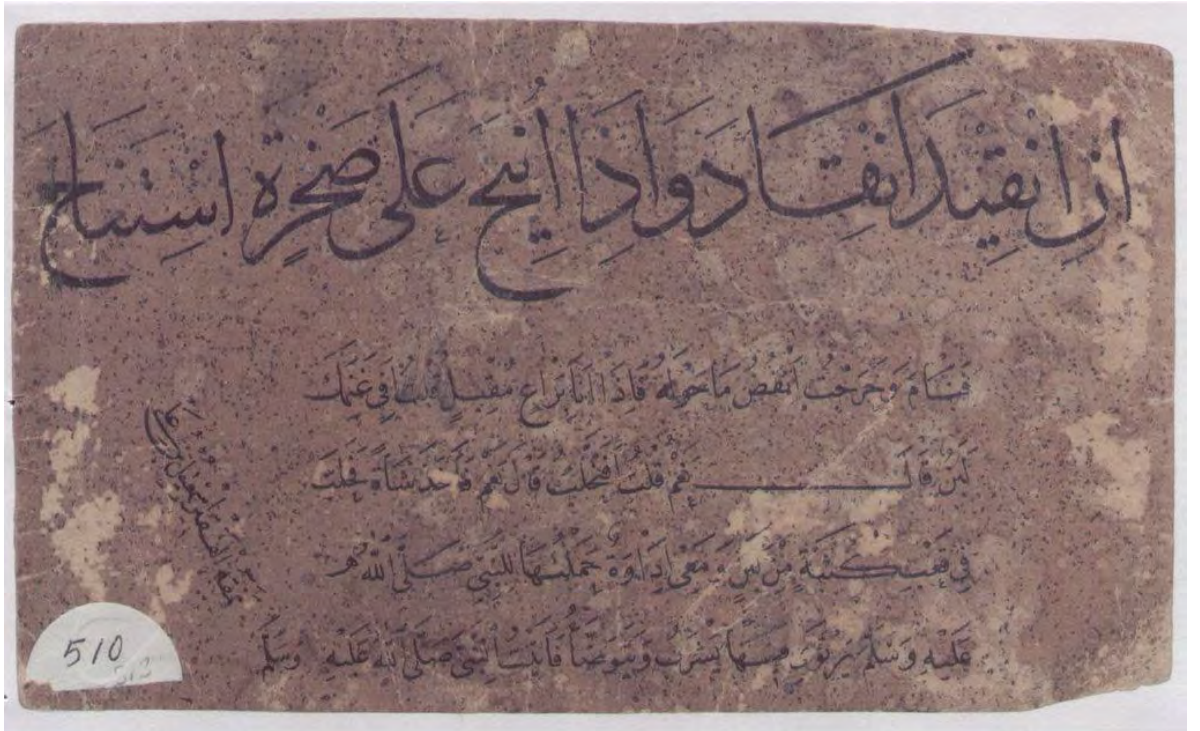 اِنِ انْقِيدَ انْقَادَ وَاِذَا اُنِيخَ عَلَى صَخْرَةٍ اسْتَنَاخَ
فَنَامَ وَخَرَجْتُ اَنْفُضُ مَا حَوْلَهُ فَاِذَا اَنَا بِرَاعٍ مُقْبِلٍ قُلْتُ اَفِي غَنَمِكَ
لَبَنٌ قَالَ نَعَمْ قُلْتُ اَفَتَحْلُبُ قَالَ نَعَمْ فَاَخَذَ شَاةً فَحَلَبَ
فِي قَعْبٍ كُثْبَةً مِنْ لَبَنٍ وَمَعِي اِدَاوَةٌ حَمَلْتُهَا لِلنَّبِيِّ صَلَّى اللّٰه
عَلَيْهِ وَسَلَّمَ يَرْتَوِي مِنْهَا يَشْرَبُ وَيَتَوَضَّأُ فَاَتَيْتُ النَّبِيَّ صَلَّى اللّٰه عَلَيْهِ وَسَلَّمَ
510